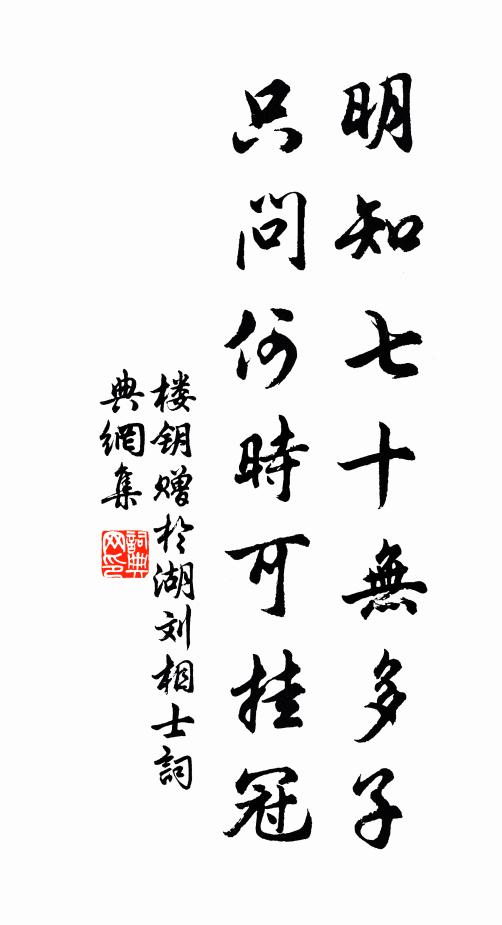 明知七十無多子
只問何時可挂冠
楼钥赠於湖刘相士詞
典網集
詞典网印